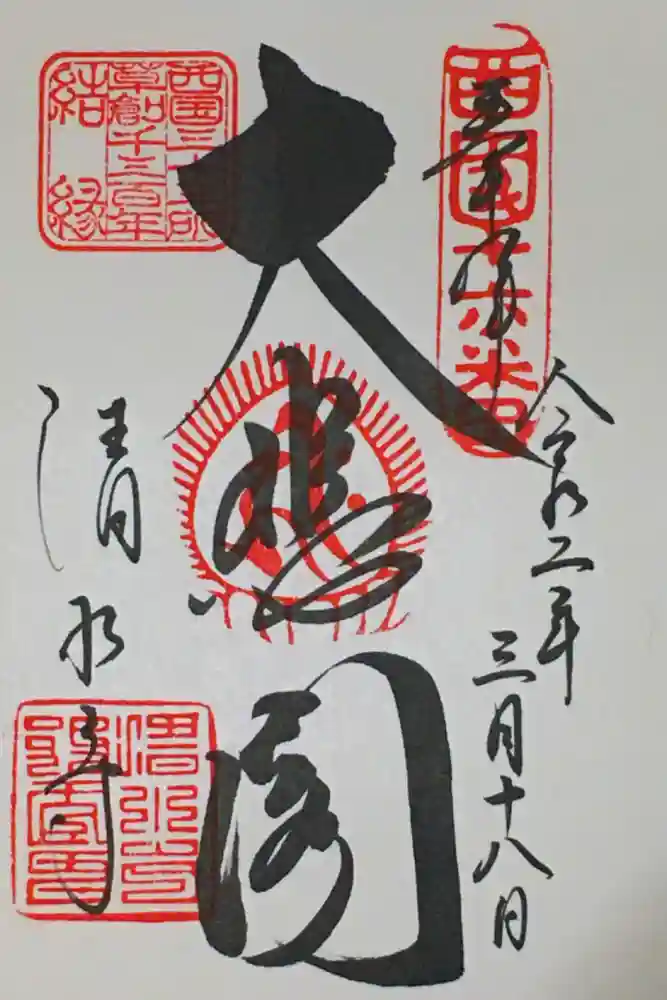 奉拝
令和二年
三月十八日
西国十六番
大悲閣
西国三十三所
草創千三百年
結縁
清水寺